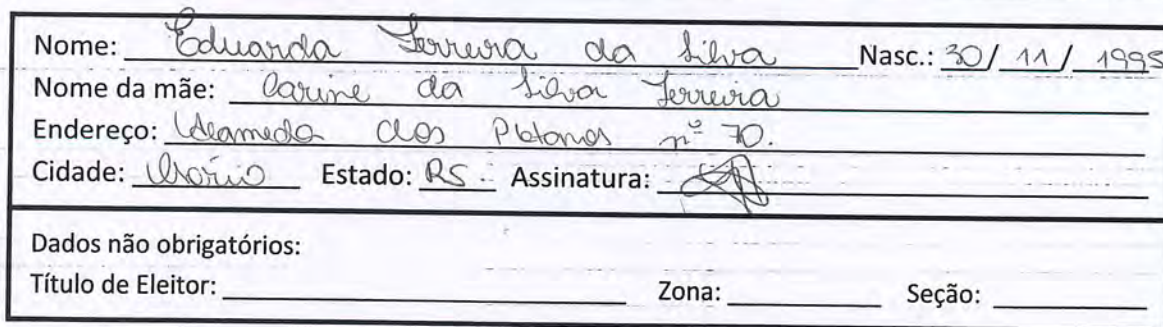 Nome: Eduarda Ferreira da Silva Nasc.: 30/11/1995
Nome da mãe: Carine da Silva Ferreira
Endereço: Alameda dos Platanos nº 70.
Cidade: Osório Estado: RS. Assinatura:
Dados não obrigatórios:
Título de Eleitor: Zona: Seção: